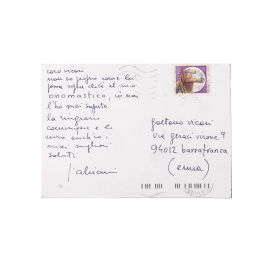 caro vicari
non so proprio come lei
possa sapere che è il mio
onomastico, io non
l'ho mai saputo.
la ringrazio
comunque e le
invio anche i
miei migliori
saluti
gaetano vicari
via geraci virone 9
94012 barrafranca
(enna)